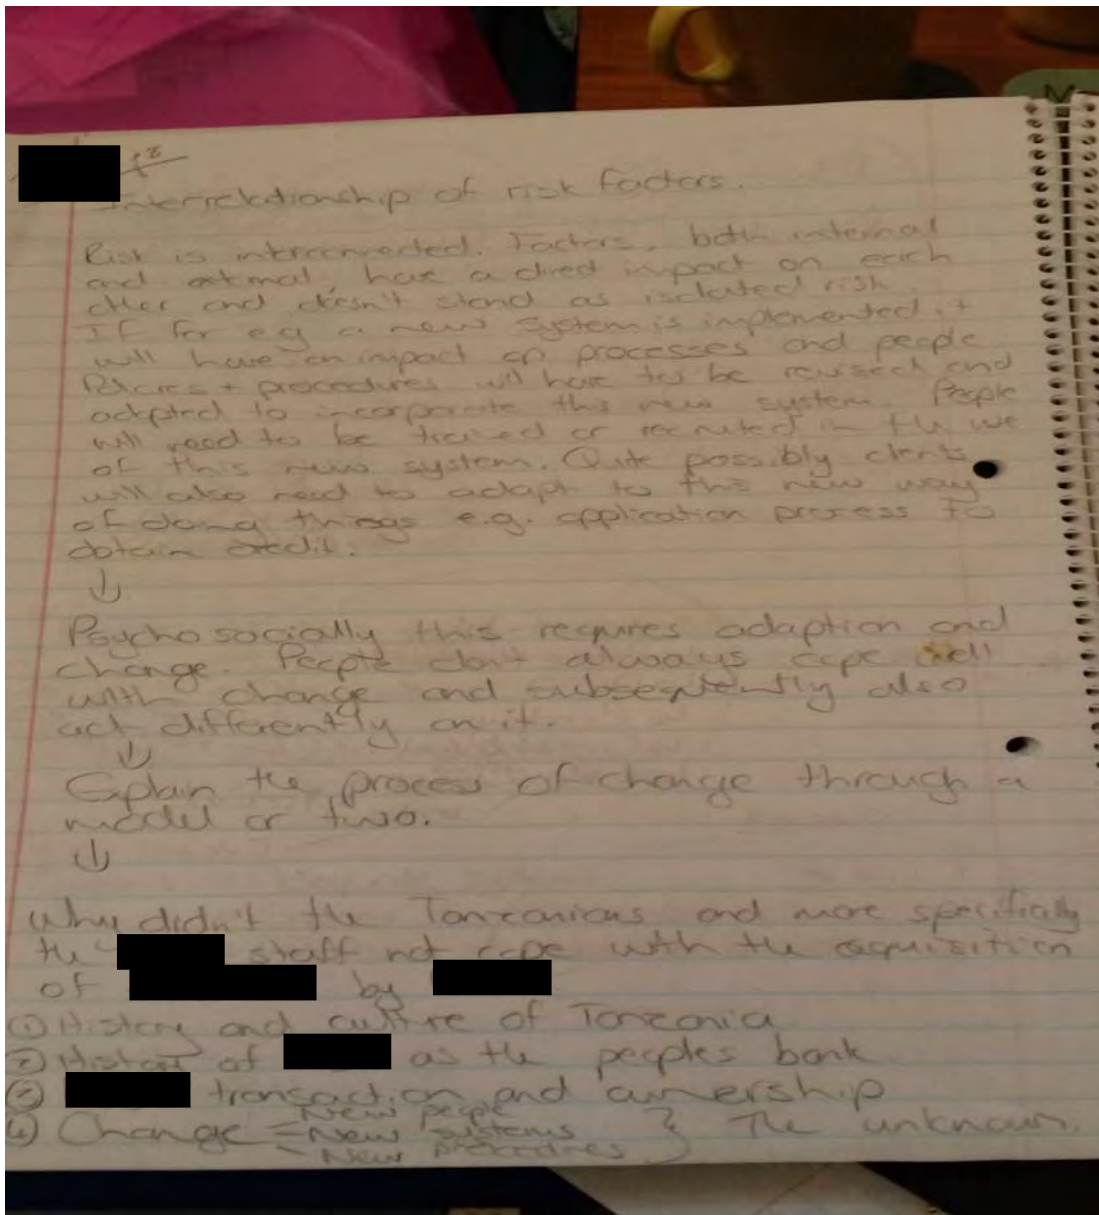 Interrelationship of risk factors.
Risk is interconnected. Factors, both internal
and external, have a direct impact on each
other and doesn't stand as isolated risk.
If for eg a new system is implemented it
will have an impact on processes and people
Policies + procedures will have to be revised and
adapted to incorporate this new system. People
will need to be trained or recruited in the use
of this new system. Quite possibly clients
will also need to adapt to this new way
of doing things e.g. application process to
obtain credit.
↓
Psychosocially this requires adaption and
change. People don't always cope well
with change and subsequently also
act differently on it.
↓
Explain the process of change through a
model or two.
↓
Why didn't the Tanzanians and more specifically
the staff not cope with the acquisition
of by
① History and culture of Tanzania
② History of as the peoples bank
③ transaction and ownership
④ Change = New people
New systems } The unknown.
New procedures